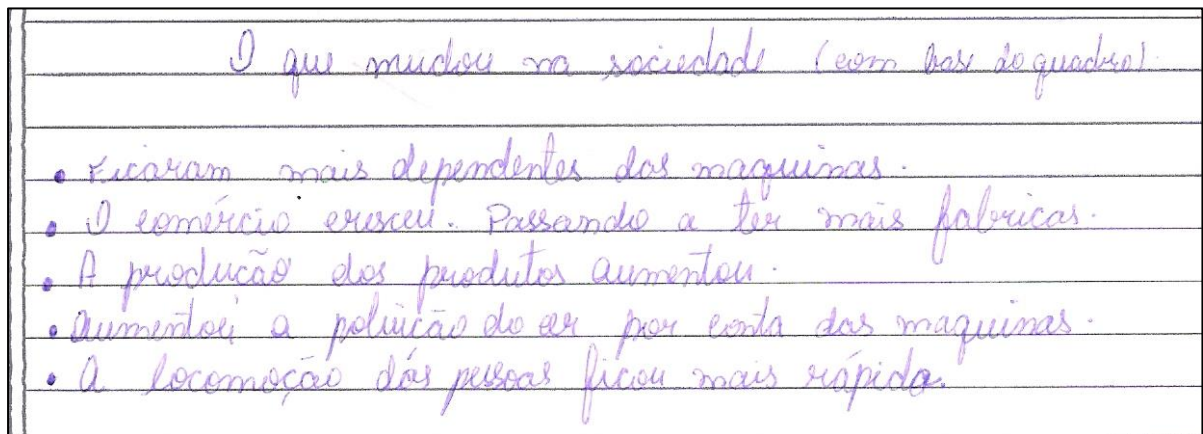 O que mudou na sociedade (com base do quadro).
• Ficaram mais dependentes das maquinas.
• O comércio cresceu. Passando a ter mais fabricas.
• A produção dos produtos aumentou.
• Aumentou a poluição do ar por conta das maquinas.
• A locomoção das pessoas ficou mais rápida.